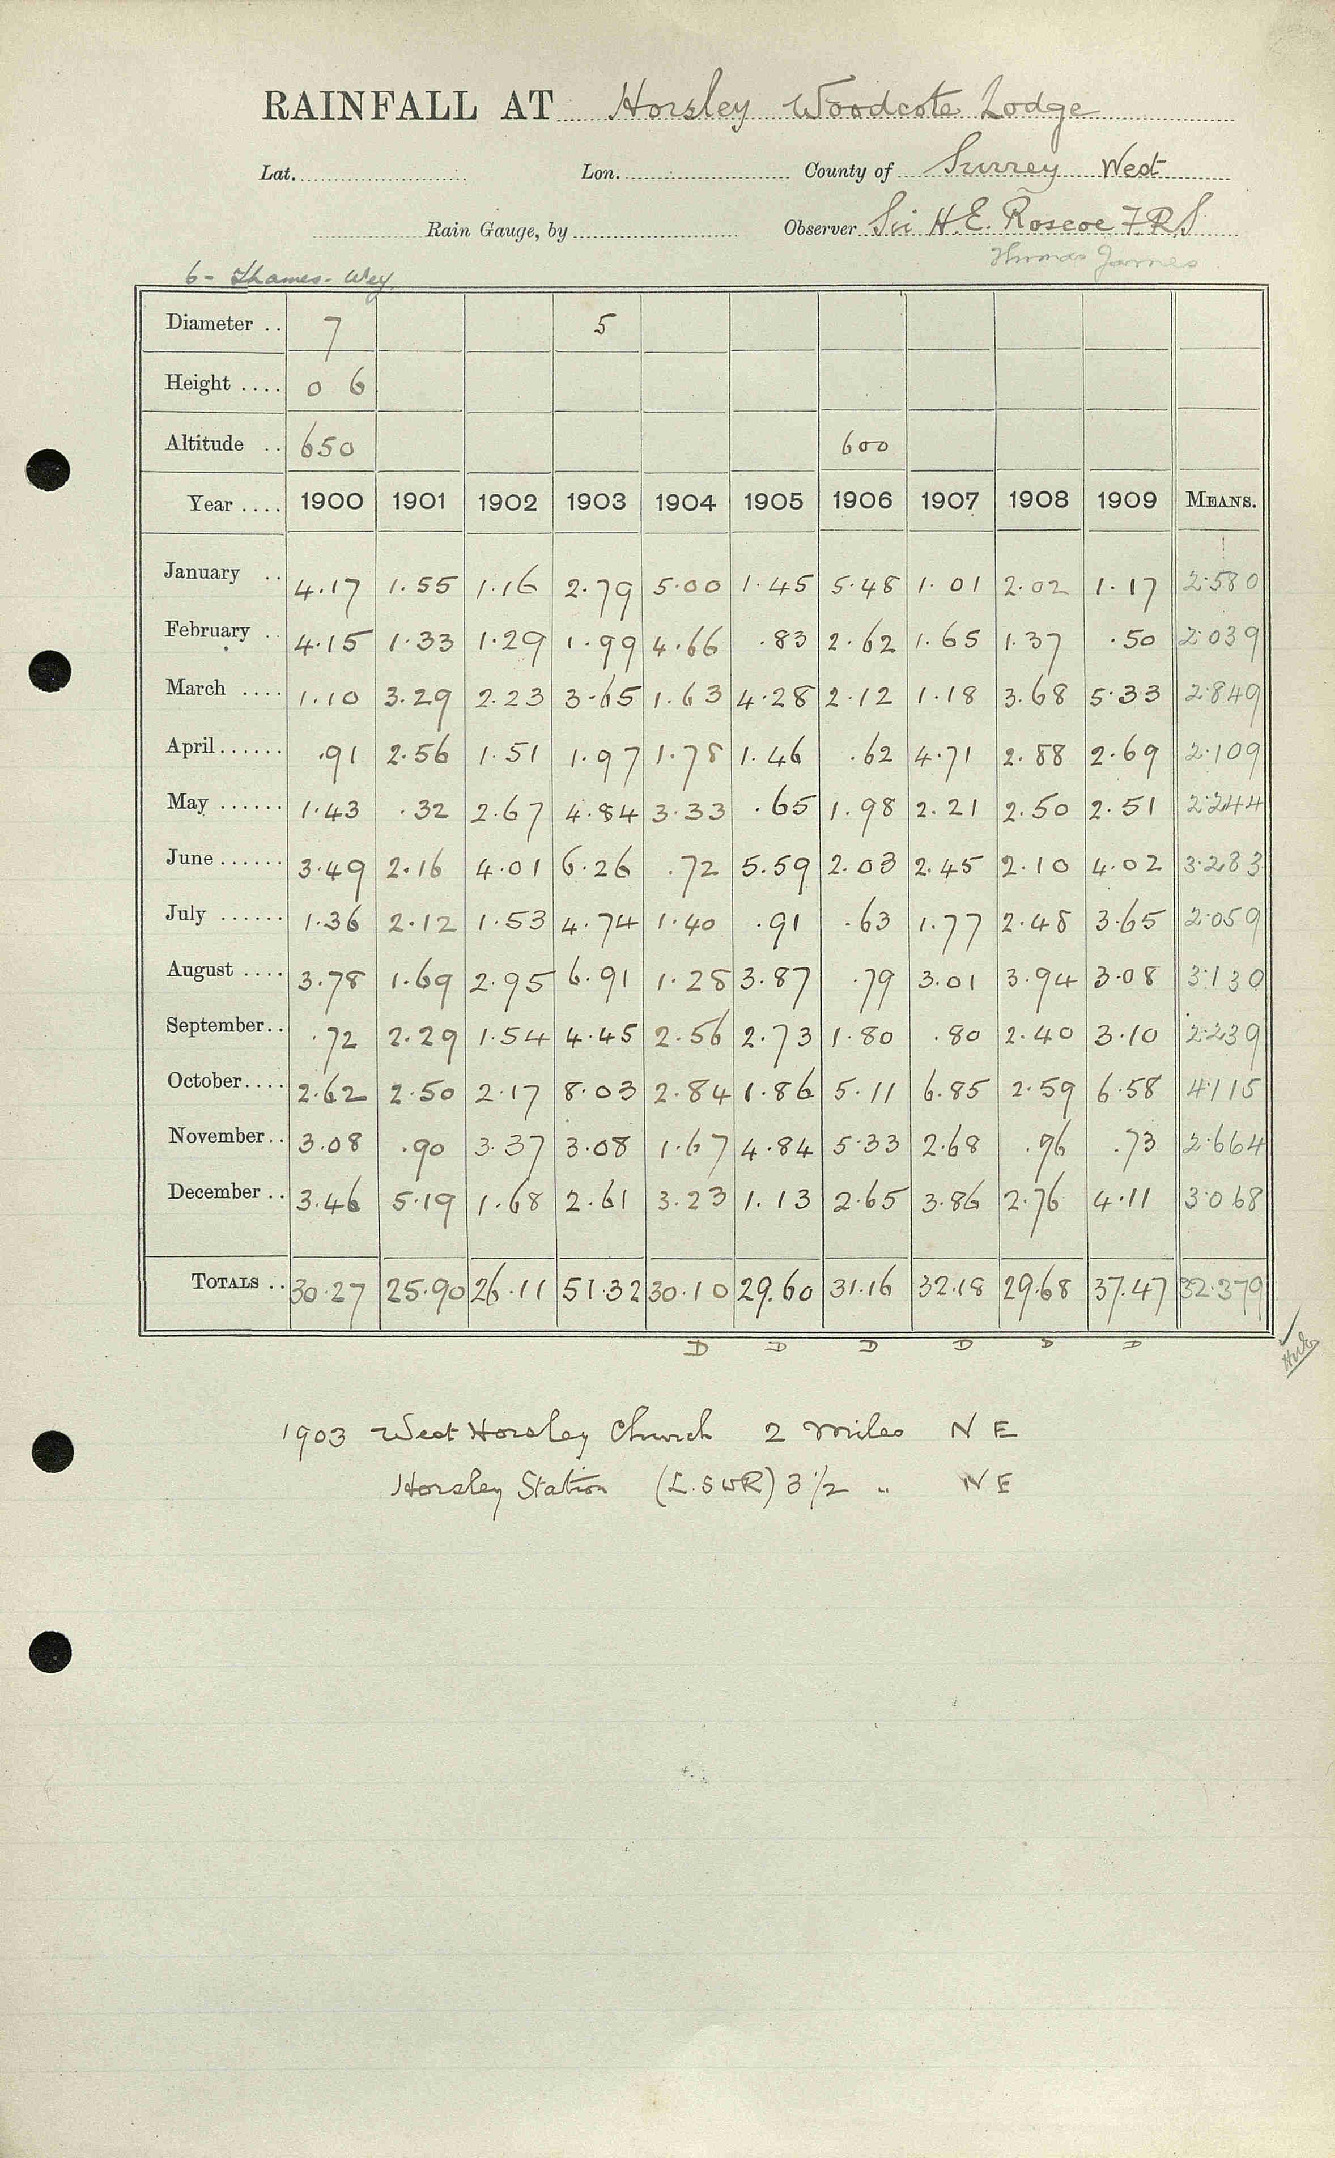 RAINFALL AT Horsley Woodcote Lodge
Lat. Lon. County of Surrey West
Rain Gauge, by Observer Sir H.E. Roscoe F.R.S.
Thomas James
6 - Thames - Wey
Diameter .. 7 5
Height .... 0 6
Altitude .. 650 600
Year .... 1900 1901 1902 1903 1904 1905 1906 1907 1908 1909 MEANS.
January .. 4.17 1.55 1.16 2.79 5.00 1.45 5.48 1.01 2.02 1.17 2.580
February .. 4.15 1.33 1.29 1.99 4.66 .83 2.62 1.65 1.37 .50 2.039
March .... 1.10 3.29 2.23 3.65 1.63 4.28 2.12 1.18 3.68 5.33 2.849
April ...... .91 2.56 1.51 1.97 1.78 1.46 .62 4.71 2.88 2.69 2.109
May ...... 1.43 .32 2.67 4.84 3.33 .65 1.98 2.21 2.50 2.51 2.244
June ...... 3.49 2.16 4.01 6.26 .72 5.59 2.03 2.45 2.10 4.02 3.283
July ...... 1.36 2.12 1.53 4.74 1.40 .91 .63 1.77 2.48 3.65 2.059
August .... 3.78 1.69 2.95 6.91 1.28 3.87 .79 3.01 3.94 3.08 3.130
September .. .72 2.29 1.54 4.45 2.56 2.73 1.80 .80 2.40 3.10 2.239
October .... 2.62 2.50 2.17 8.03 2.84 1.86 5.11 6.85 2.59 6.58 4.115
November .. 3.08 .90 3.37 3.08 1.67 4.84 5.33 2.68 .96 .73 2.664
December .. 3.46 5.19 1.68 2.61 3.23 1.13 2.65 3.86 2.76 4.11 3.068
TOTALS .. 30.27 25.90 26.11 51.32 30.10 29.60 31.16 32.18 29.68 37.47 32.379
D D D D D D
1903 West Horsley Church 2 miles N E
Horsley Station (L.SWR) 3 1/2 " N E